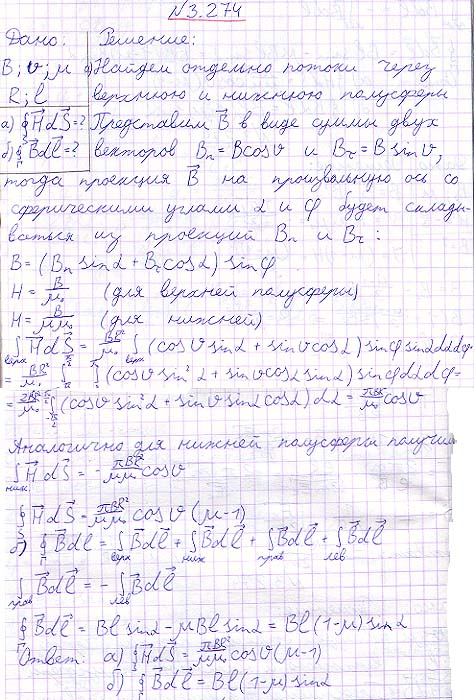 №3.274
Дано: Решение:
B; υ; μ а) Найдем отдельно потоки через
R; l верхнюю и нижнюю полусферы
а) ∮H⃗dS⃗=? Представим B⃗ в виде суммы двух
б) ∮B⃗dl⃗=? векторов Bₙ = Bcosυ и Bτ = B sinυ,
тогда проекция B⃗ на произвольную ось со
сферическими углами α и φ будет склады-
ваться из проекций Bₙ и Bτ:
B = (Bₙ sinα + Bτ cosα) sinφ
H = B/μ₀ (для верхней полусферы)
H = B/μμ₀ (для нижней)
∫верх H⃗dS⃗ = BR²/μ₀ ∫верх (cosυ sinα + sinυ cosα) sinφ sinα dα dφ
= BR²/μ₀ ∫ ∫ (cosυ sin²α + sinυ cosα sinα) sinφ dα dφ =
= 2BR²/μ₀ ∫ (cosυ sin²α + sinυ sinα cosα) dα = πBR²/μ₀ cosυ
Аналогично для нижней полусферы получим
∫ниж. H⃗dS⃗ = - πBR²/μμ₀ cosυ
∮S H⃗dS⃗ = πBR²/μμ₀ cosυ (μ-1)
б) ∮Г B⃗dl⃗ = ∫верх B⃗dl⃗ + ∫ниж B⃗dl⃗ + ∫прав B⃗dl⃗ + ∫лев B⃗dl⃗
∫прав B⃗dl⃗ = - ∫лев B⃗dl⃗
∮Г B⃗dl⃗ = Bl sinα - μBl sinα = Bl (1-μ) sinα
Ответ: а) ∮S H⃗dS⃗ = πBR²/μμ₀ cosυ (μ-1)
б) ∮ B⃗dl⃗ = Bl (1-μ) sinα